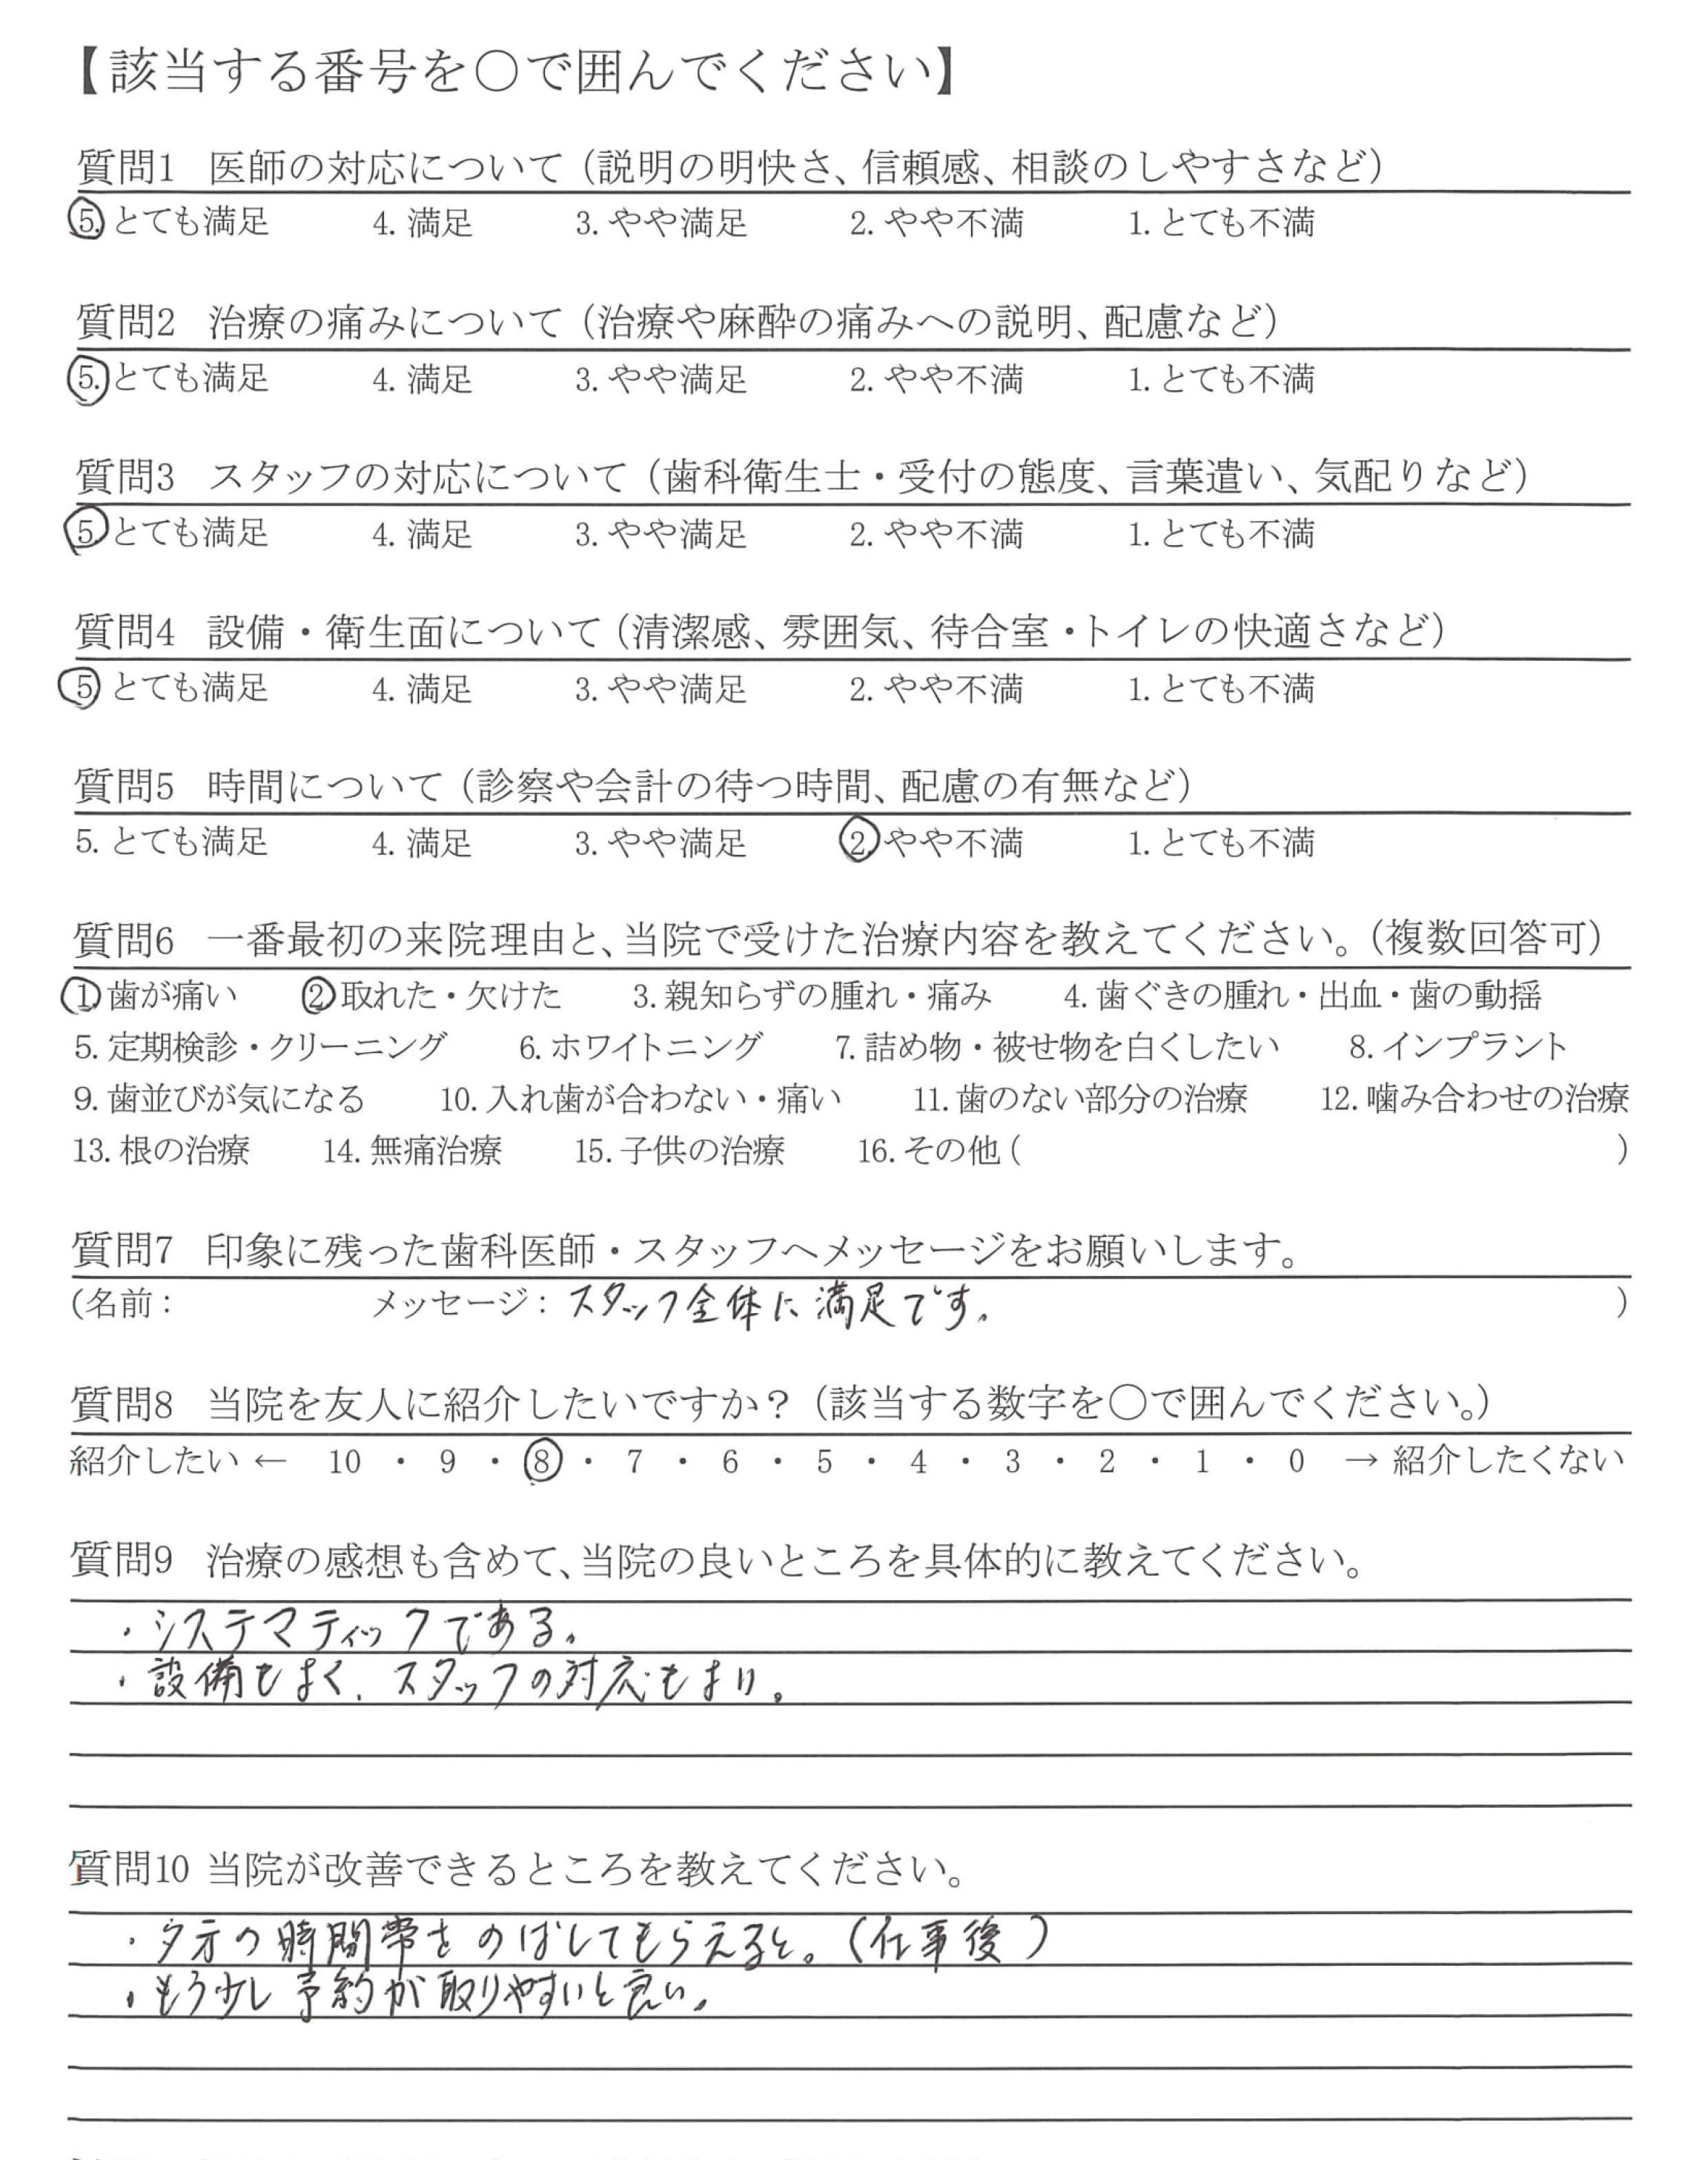 【該当する番号を○で囲んでください】
質問1 医師の対応について（説明の明快さ、信頼感、相談のしやすさなど）
5. とても満足 4. 満足 3. やや満足 2. やや不満 1. とても不満
質問2 治療の痛みについて（治療や麻酔の痛みへの説明、配慮など）
5. とても満足 4. 満足 3. やや満足 2. やや不満 1. とても不満
質問3 スタッフの対応について（歯科衛生士・受付の態度、言葉遣い、気配りなど）
5. とても満足 4. 満足 3. やや満足 2. やや不満 1. とても不満
質問4 設備・衛生面について（清潔感、雰囲気、待合室・トイレの快適さなど）
5 とても満足 4. 満足 3. やや満足 2. やや不満 1. とても不満
質問5 時間について（診察や会計の待つ時間、配慮の有無など）
5. とても満足 4. 満足 3. やや満足 2. やや不満 1. とても不満
質問6 一番最初の来院理由と、当院で受けた治療内容を教えてください。（複数回答可）
1. 歯が痛い 2. 取れた・欠けた 3. 親知らずの腫れ・痛み 4. 歯ぐきの腫れ・出血・歯の動揺
5. 定期検診・クリーニング 6. ホワイトニング 7. 詰め物・被せ物を白くしたい 8. インプラント
9. 歯並びが気になる 10. 入れ歯が合わない・痛い 11. 歯のない部分の治療 12. 噛み合わせの治療
13. 根の治療 14. 無痛治療 15. 子供の治療 16. その他（ ）
質問7 印象に残った歯科医師・スタッフへメッセージをお願いします。
（名前： メッセージ：スタッフ全体に満足です。 ）
質問8 当院を友人に紹介したいですか？（該当する数字を○で囲んでください。）
紹介したい ← 10 ・ 9 ・ 8 ・ 7 ・ 6 ・ 5 ・ 4 ・ 3 ・ 2 ・ 1 ・ 0 → 紹介したくない
質問9 治療の感想も含めて、当院の良いところを具体的に教えてください。
・システマティックである。
・設備もよく、スタッフの対応もよい。
質問10 当院が改善できるところを教えてください。
・夕方の時間帯をのばしてもらえると。（仕事後）
・もう少し予約が取りやすいと良い。